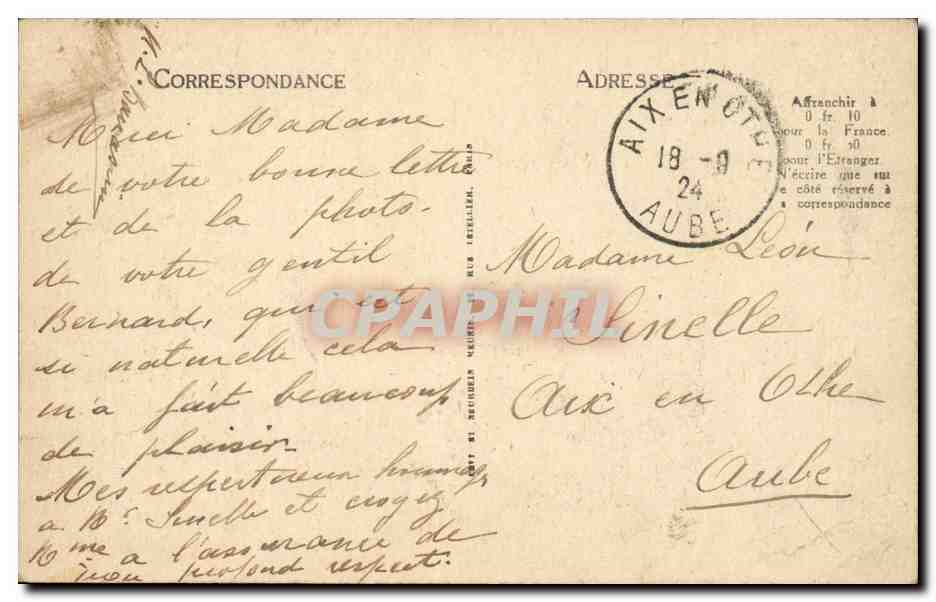 CORRESPONDANCE
Merci Madame
de votre bonne lettre
et de la photo.
de votre gentil
Bernard, qui est
si naturelle cela
m'a fait beaucoup
de plaisir.
Mes respectueux hommag
a Mr. Sinelle et croyez
Mme a l'assurance de
mon profond respect.
RUE LETELLIER, PARIS
ADRESSE
AIX EN OTHE
18 - 9
24
AUBE
Affranchir à
0 fr. 10
pour la France.
0 fr. 10
pour l'Etranger
N'écrire que sur
e côté réservé à
a correspondance
Madame Léon
Sinelle
Aix en Othe
Aube
CPAPHIL